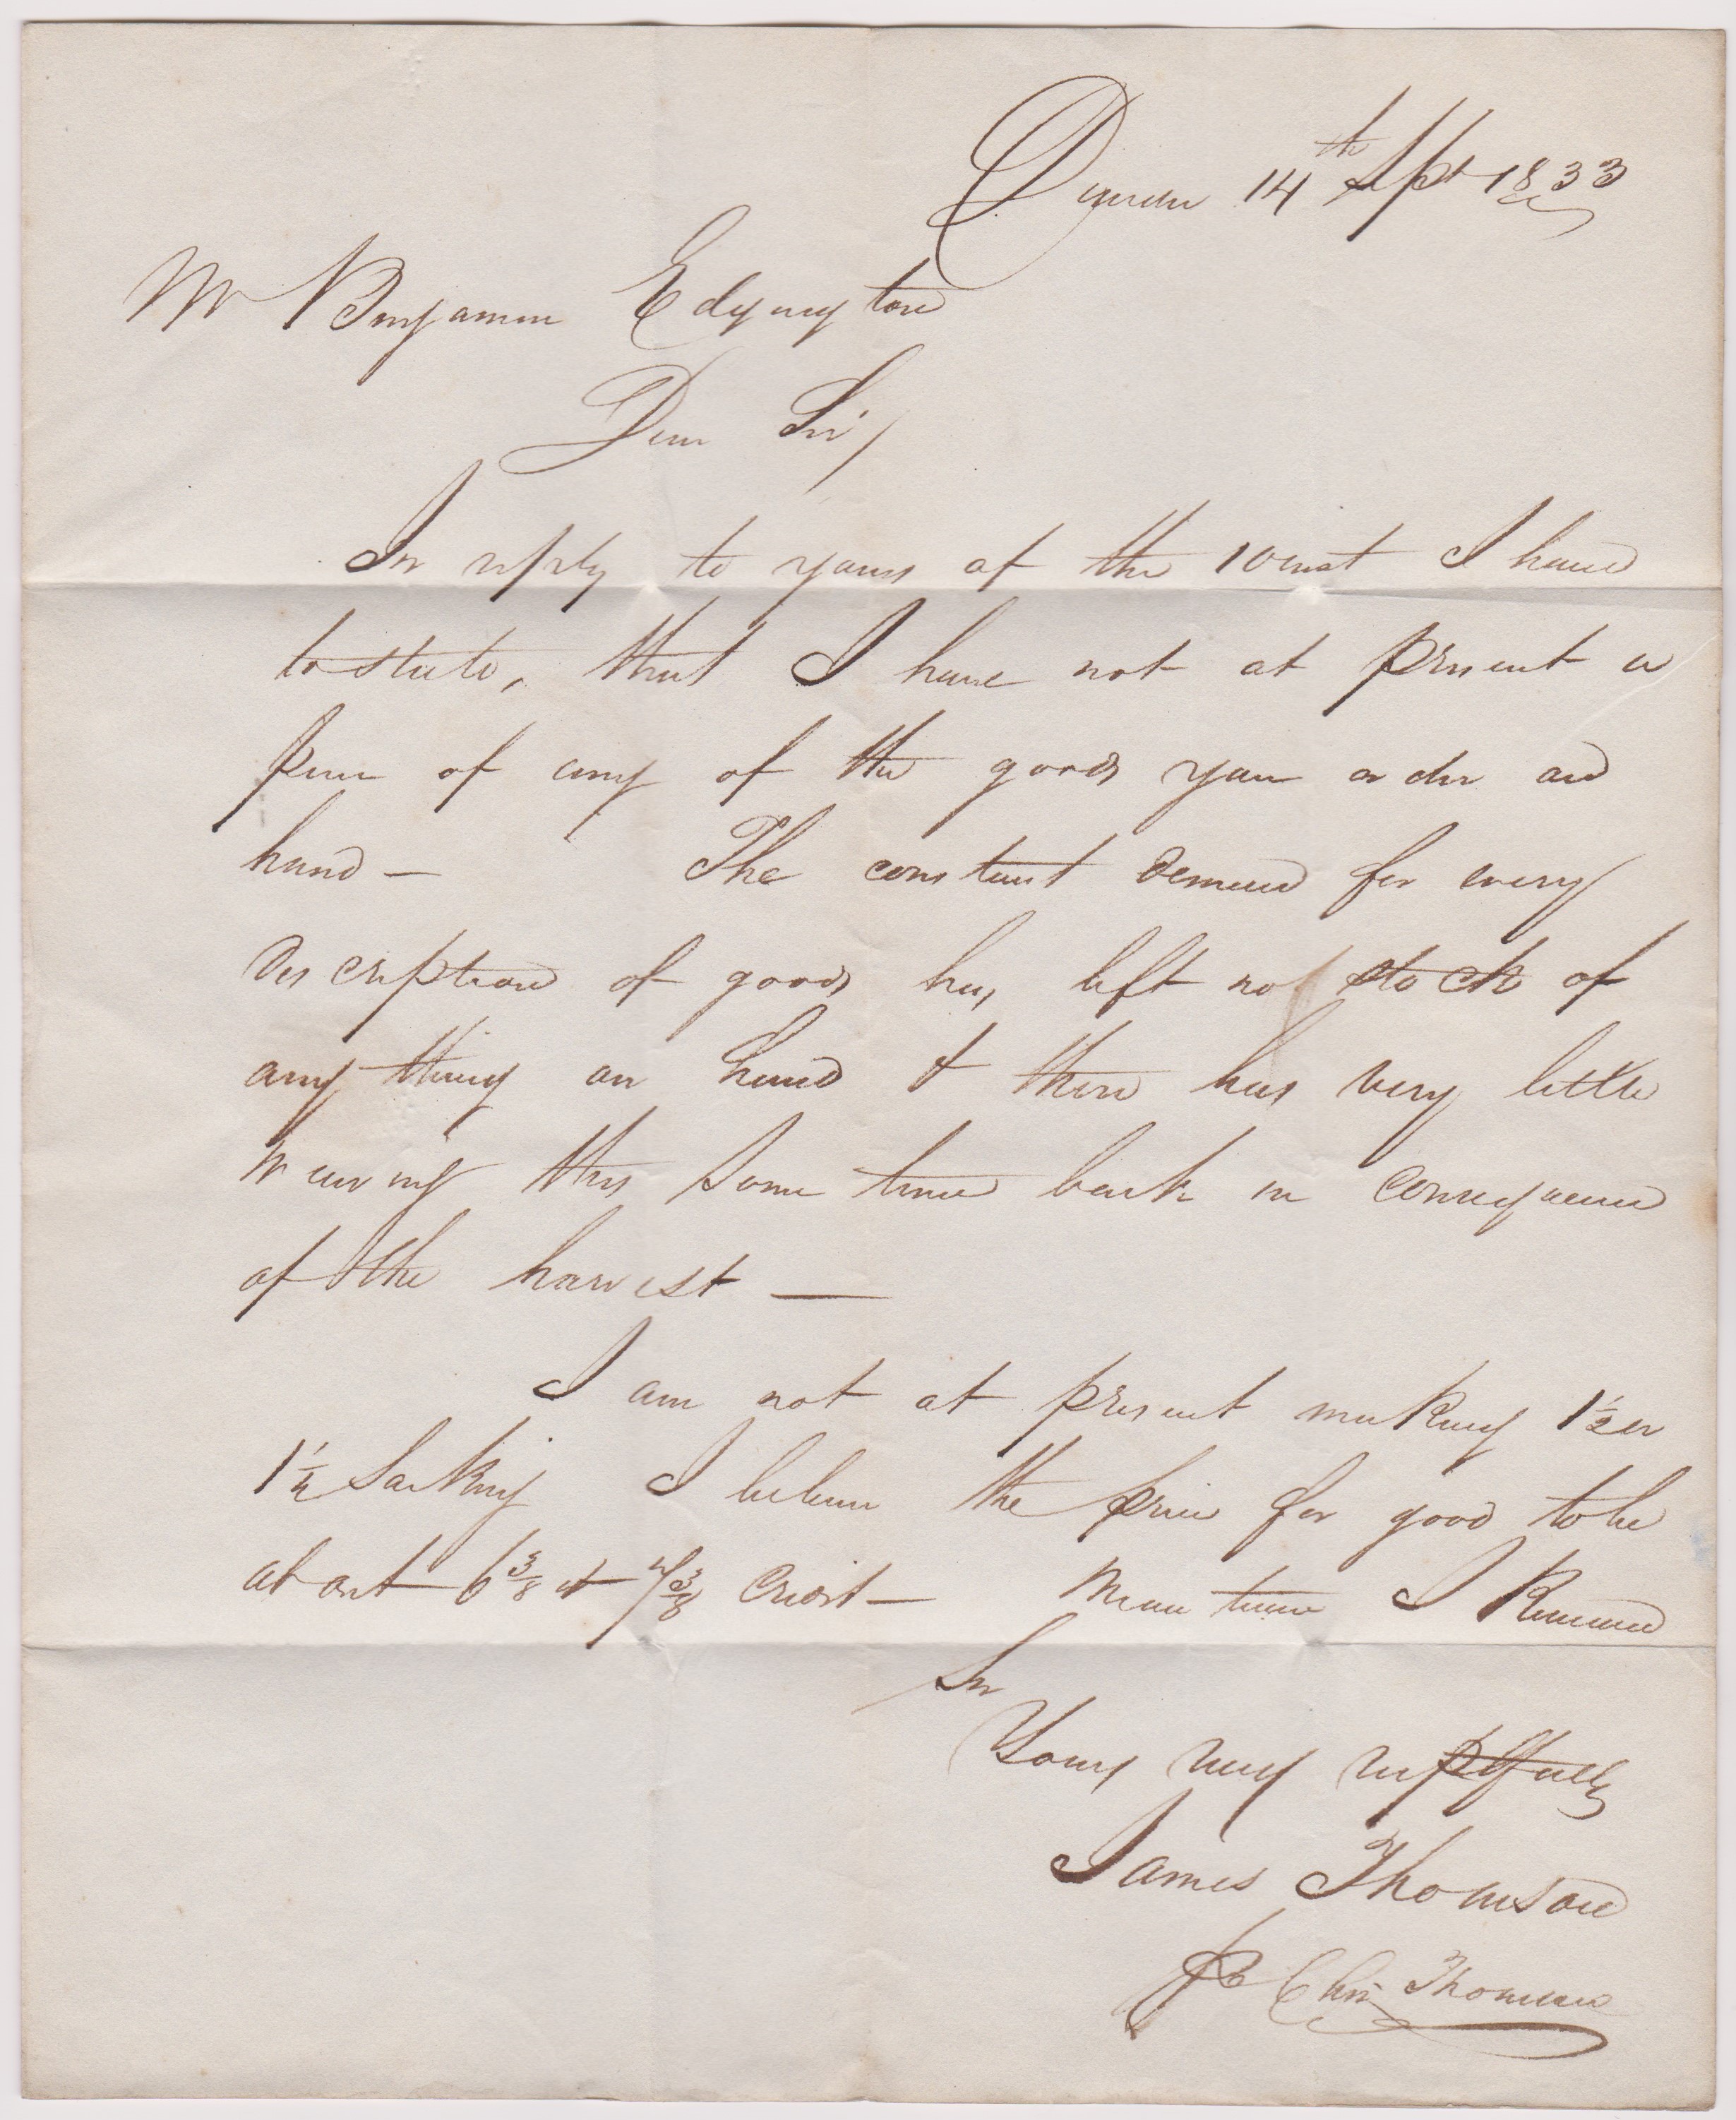 14th Sept 1833
Mr Benjamin Edgington
Dear Sir/
In reply to yours of the 10 inst I have
to state, that I have not at present a
piece of any of the goods you order on
hand — The constant demand for every
description of goods has left no stock of
any thing on hand & there has very little
weaving this some time back in consequence
of the harvest —
I am not at present making 1½ or
1¼ Sacking I believe the price for good to be
about 6⅜ to 7⅜ Credit — Mean time I Remain
Sir
Yours very respectfully
James Thomson
Thomson